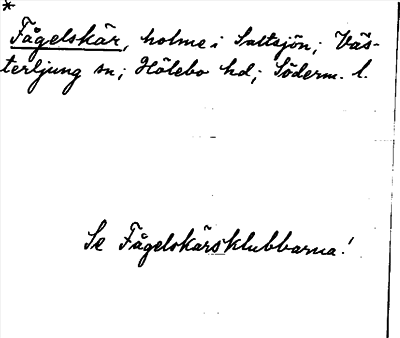 *
Fågelskär, holme i Saltsjön; Väs-
terljung sn; Hölebo hd; Söderm. l.
Se Fågelskärsklubbarna!